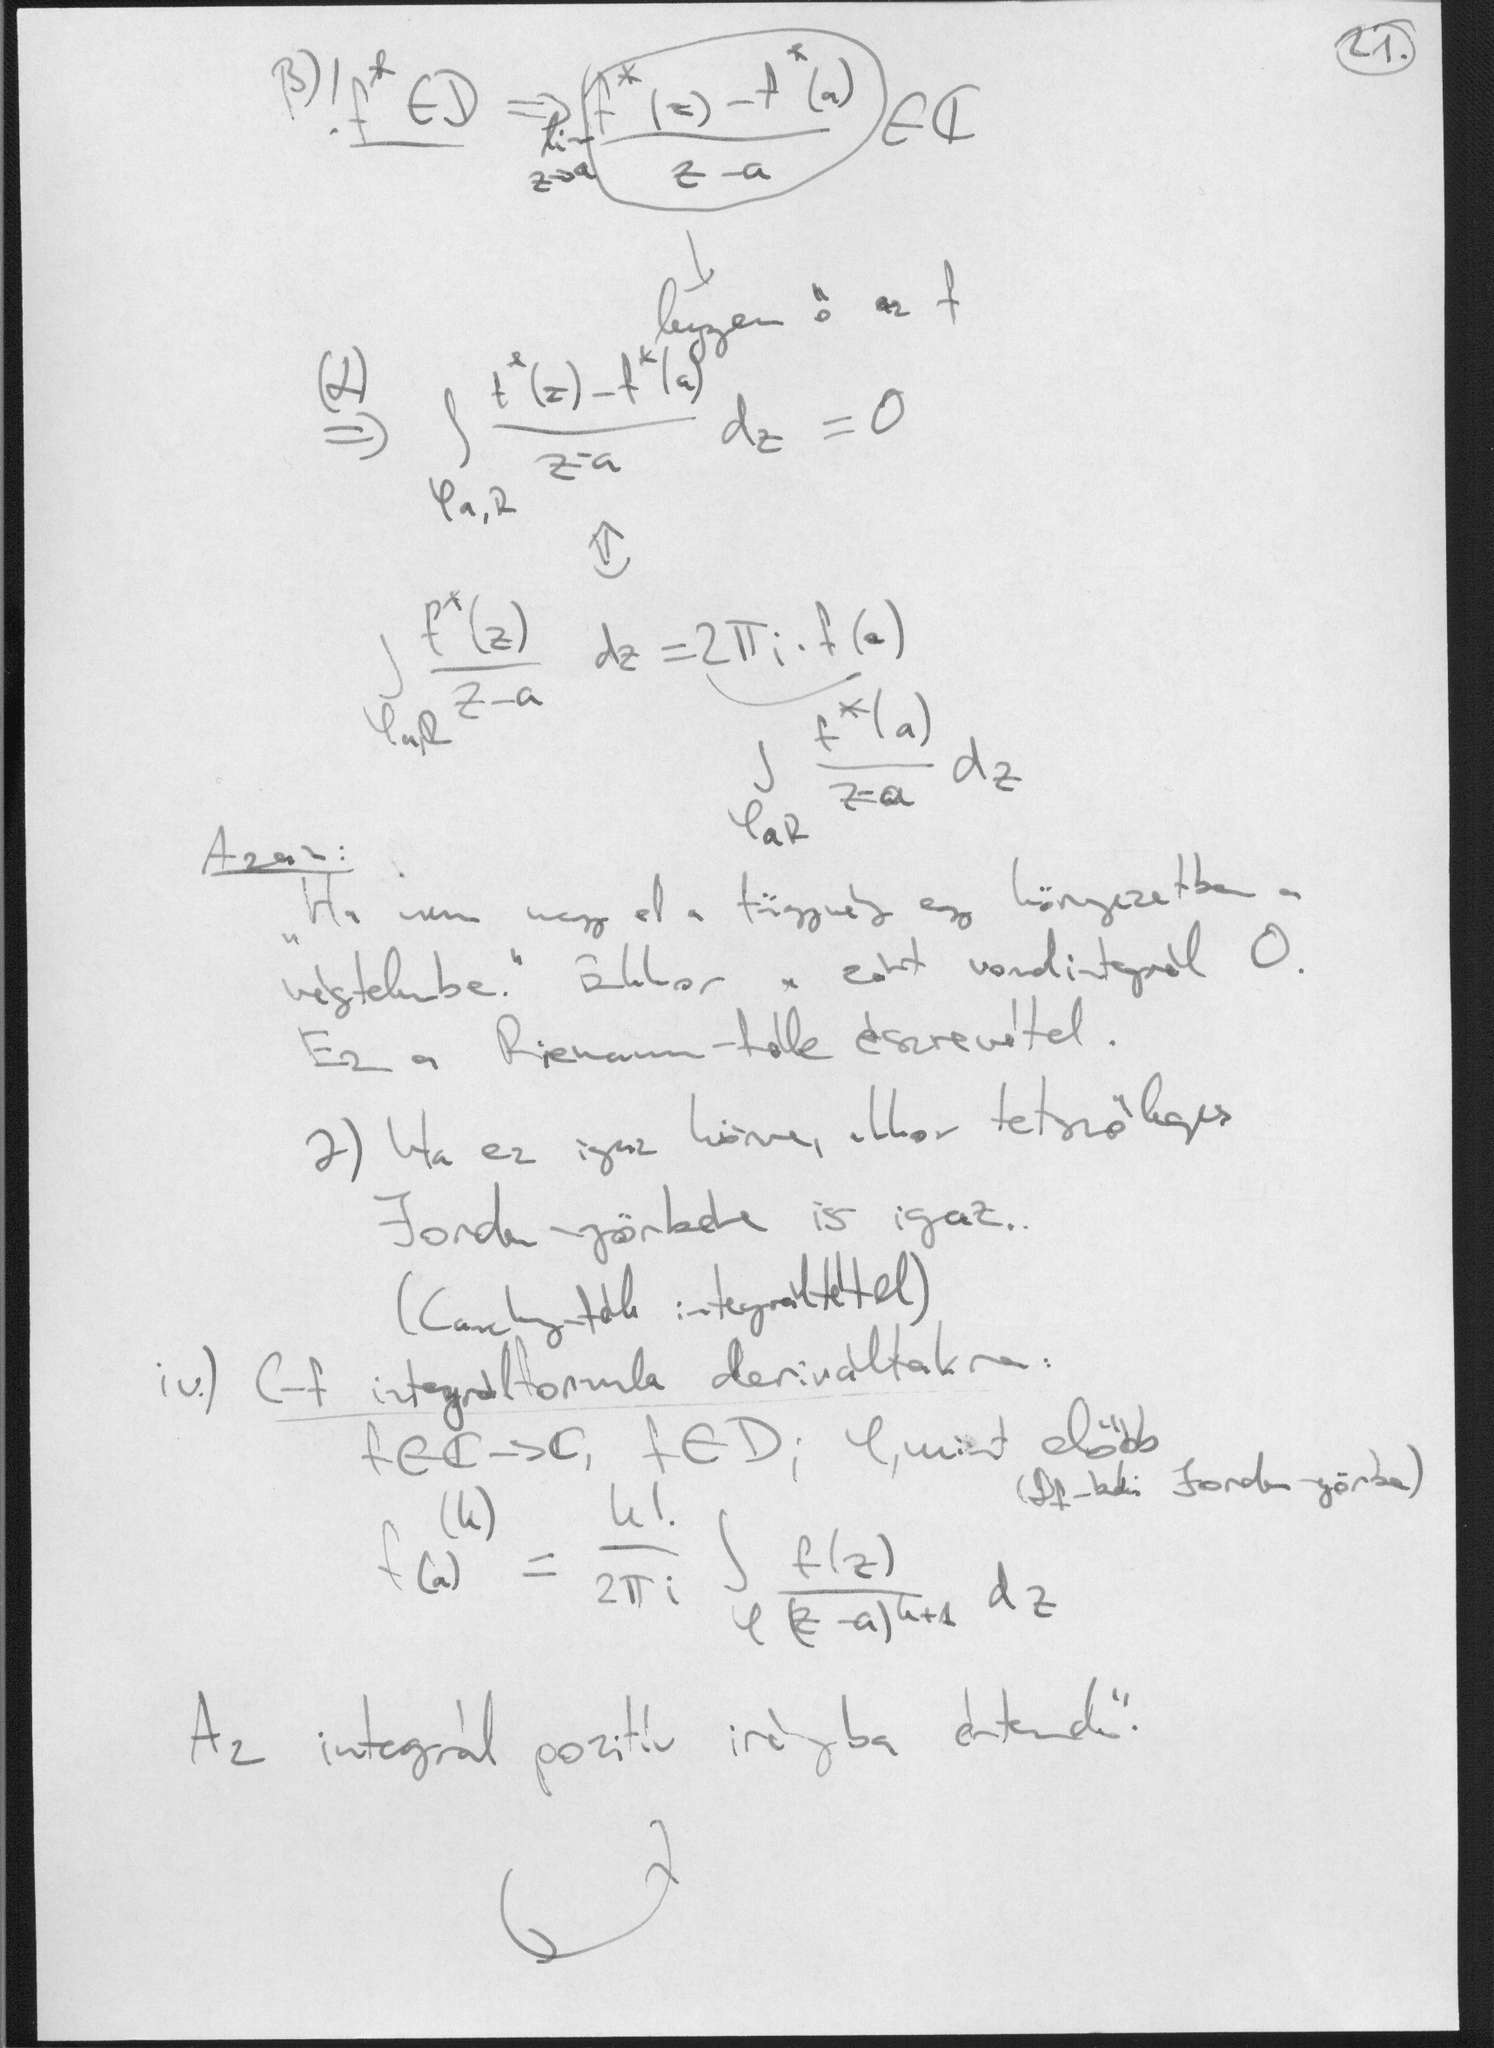 21.
β) ! f* ∈ D ⇒ lim z→a (f*(z) – f*(a)) / (z – a) ∈ ℂ
legyen ő az f
(α) ⇒ ∫_{φa,R} (f*(z) – f*(a)) / (z – a) dz = 0
⇕
∫_{φa,R} f*(z) / (z – a) dz = 2πi · f(a)
∫_{φa,R} f*(a) / (z – a) dz
Azaz:
"Ha nem megy el a függvény egy környezetben a
végtelenbe." Ekkor a zárt vonalintegrál 0.
Ez a Riemann-féle észrevétel.
2) Ha ez igaz körre, akkor tetszőleges
Jordan-görbére is igaz..
(Cauchy-féle integráltétel)
iv.) C-f integrálformula deriváltakra:
f ∈ ℂ → ℂ, f ∈ D; φ, mint előbb
(Df-beli Jordan-görbe)
f^(k)(a) = k! / 2πi ∫_φ f(z) / (z – a)^{k+1} dz
Az integrál pozitív irányba értendő.